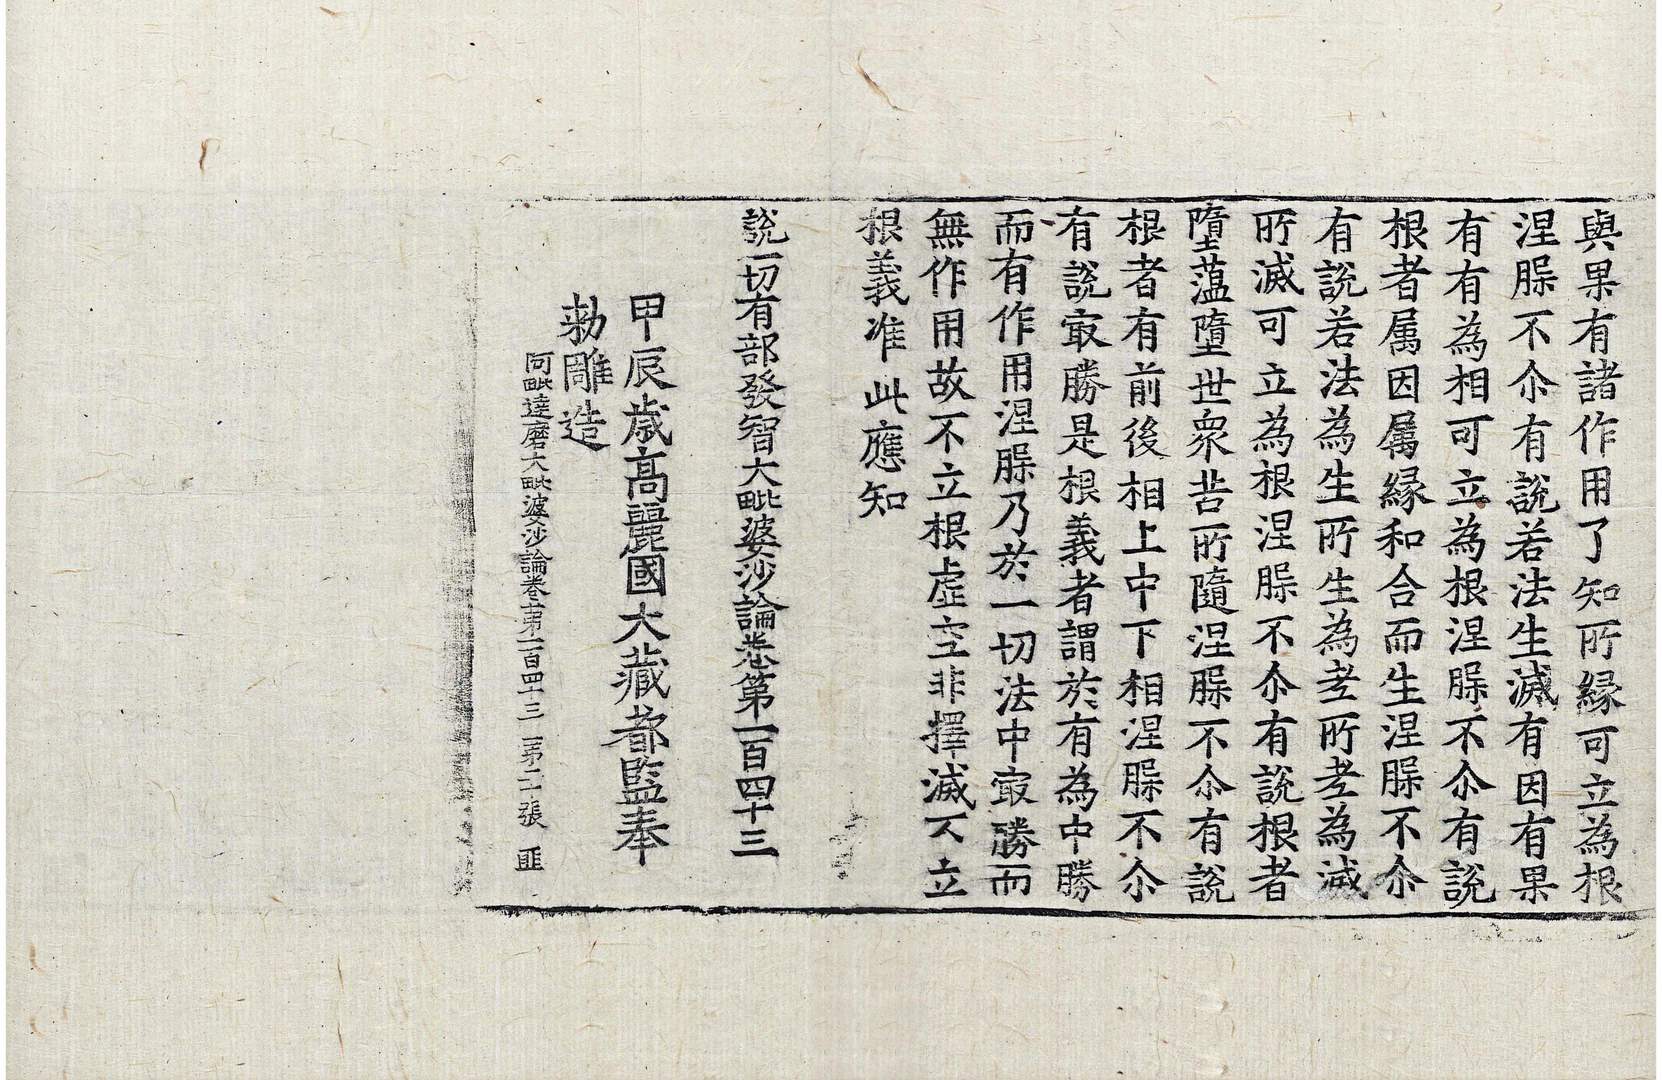 與果有諸作用了知所縁可立為根
涅脲不尒有說若法生滅有因有果
有有為相可立為根涅脲不尒有說
根者属因属縁和合而生涅脲不尒
有說若法為生所生為老所老為滅
所滅可立為根涅脲不尒有說根者
墮蕰墮世衆苦所隨涅脲不尒有說
根者有前後相上中下相涅脲不尒
有說㝡勝是根義者謂於有為中勝
而有作用涅脲乃於一切法中㝡勝而
無作用故不立根虛空非擇滅不立
根義准此應知
說一切有部發智大毗婆沙論卷第一百四十三
甲辰歲高麗國大藏都監奉
勑雕造
阿毗達磨大毗婆沙論卷第一百四十三 第二十張 匪